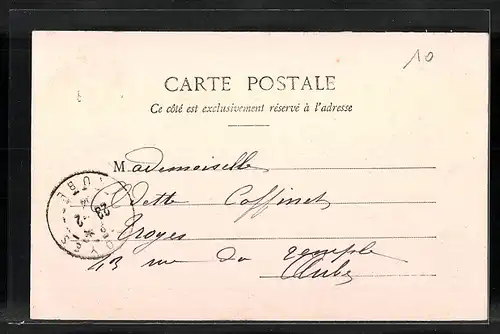 10
CARTE POSTALE
Ce côté est exclusivement réservé à l'adresse
Mademoiselle
Odette Coffinet
Troyes
43 rue du temple
Aube
TROYES
AUBE